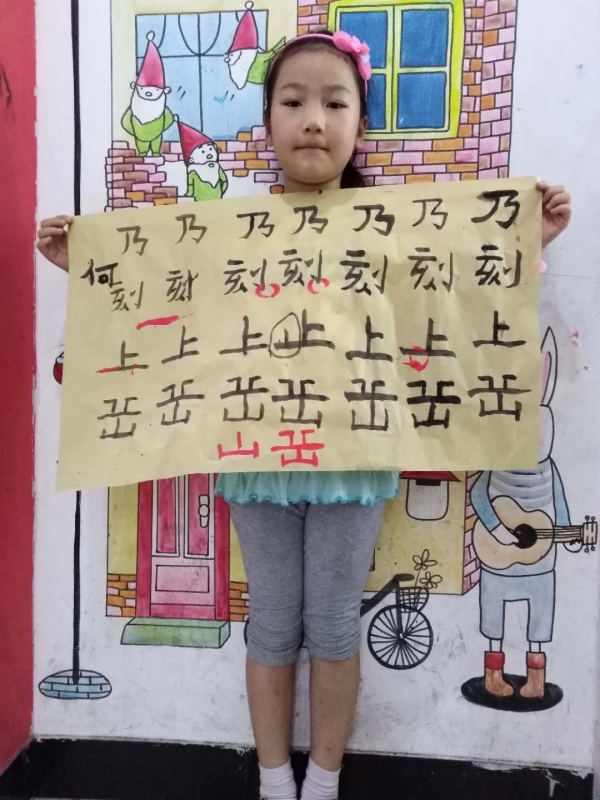 乃乃乃乃乃乃乃
何刻刻刻刻刻刻刻
上上上上上上上上
岳岳岳岳岳岳岳
山岳